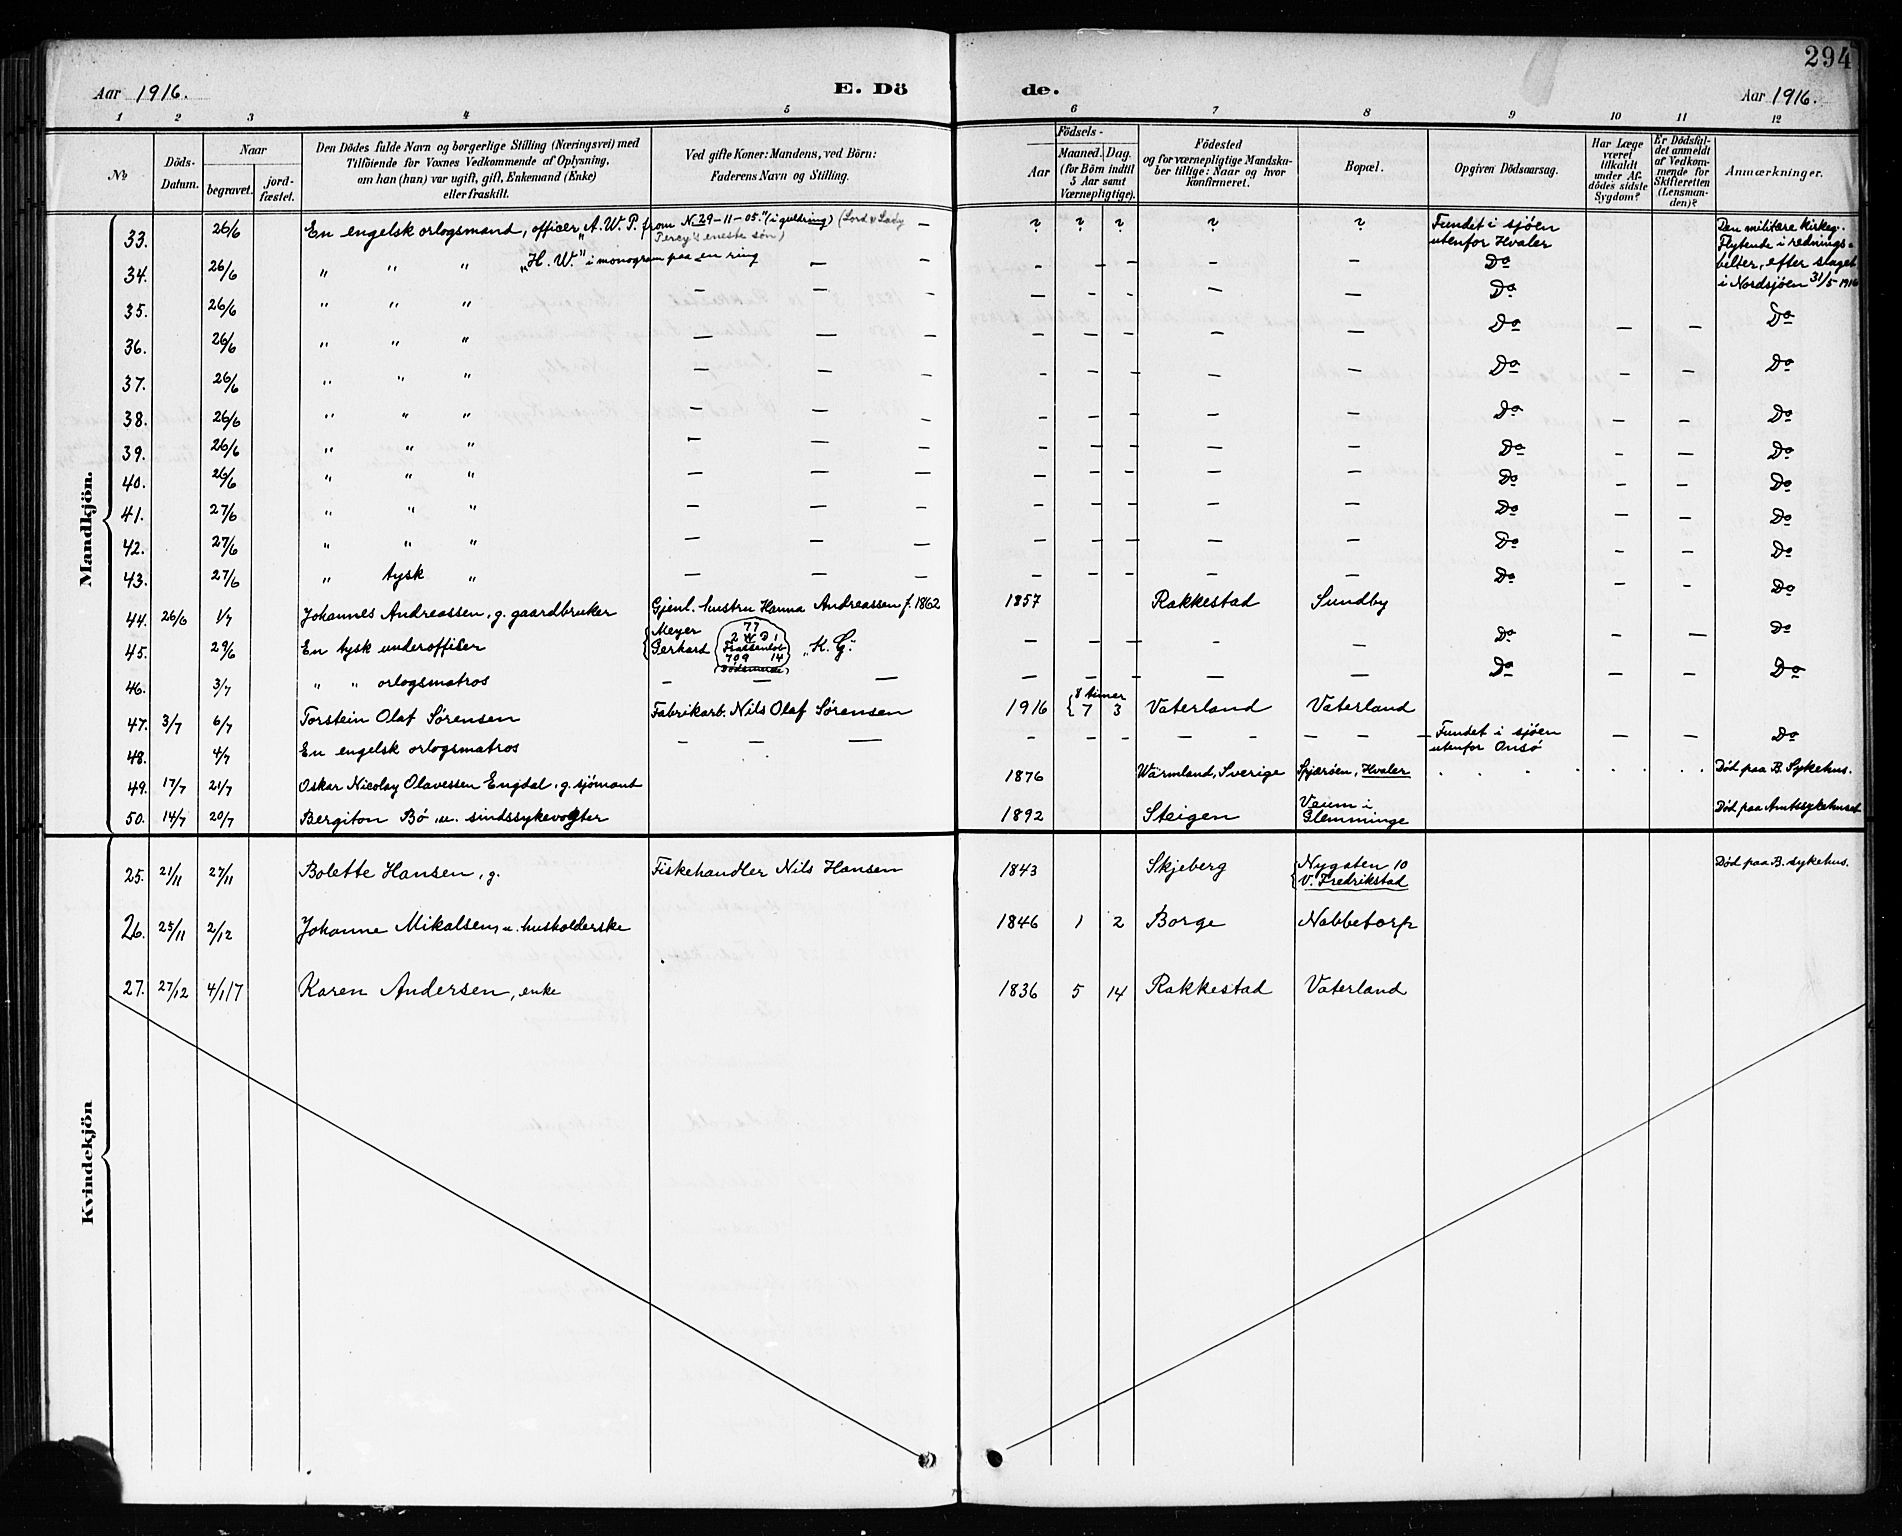 294
Aar 1916. E. Dö de. Aar 1916.
1 2 3 4 5 6 7 8 9 10 11 12
No
Döds-Datum.
Naar
begravet.
jord-fæstet.
Den Dödes fulde Navn og borgerlige Stilling (Næringsvei) med
Tilföiende for Voxnes Vedkommende af Oplysning,
om han (hun) var ugift, gift, Enkemand (Enke)
eller fraskilt.
Ved gifte Koner: Mandens, ved Börn:
Faderens Navn og Stilling.
Födsels-
Aar
Maaned. Dag.
(for Börn indtil
5 Aar samt
Værnepligtige).
Födested
og for værnepligtige Mandska-
ber tillige: Naar og hvor
Konfirmeret.
Bopæl.
Opgiven Dödsaarsag.
Har Læge
været
tilkaldt
under Af-
dödes sidste
Sygdom?
Er Dödsfal-
det anmeldt
af Vedkom-
mende for
Skifteretten
(Lensman-
den)?
Anmærkninger.
Mandkjön.
33. 26/6 En engelsk orlogsmand, officer „A. W. P. from N. 29-11-05." (i guldring) (Lord & Lady Percy's eneste søn) — ? ? ? ? ? Fundet i sjöen utenfor Hvaler Den militære kirkeg.. Flytende i rednings-
34. 26/6 „ „ „ „H. W." i monogram paa en ring — — — — — — — Do belter, efter slaget
35. 26/6 „ „ „ — — — — — — — — Do i Nordsjöen 31/5 1916
36. 26/6 „ „ „ — — — — — — — — Do — — Do
37. 26/6 „ „ „ — — — — — — — — Do — — Do
38. 26/6 „ „ „ — — — — — — — — Do — — Do
39. 26/6 „ „ „ — — — — — — — — Do — — Do
40. 26/6 „ „ „ — — — — — — — — Do — — Do
41. 27/6 „ „ „ — — — — — — — — Do — — Do
42. 27/6 „ „ „ — — — — — — — — Do — — Do
43. 27/6 „ tysk „ — — — — — — — — Do — — Do
44. 26/6 1/7 Johannes Andreassen, g. gaardbruker Gjenl. hustru Hanna Andreassen f. 1862 1857 Rakkestad Sundby
45. 29/6 En tysk underofficer Meyer Gerhard 77 2 W D 1 709 14 „K. G." — — — — — Do — — Do
46. 3/7 „ „ orlogsmatros — — — — — — — — Do Do
47. 3/7 6/7 Torstein Olaf Sørensen Fabrikarb. Nils Olaf Sørensen 1916 8 timer 7 3 Vaterland Vaterland
48. 4/7 En engelsk orlogsmatros — — — — — — — — Fundet i sjöen utenfor Onsö — — Do
49. 17/7 21/7 Oskar Nicolay Olavessen Engdal, g. sjömand 1876 Wärmland, Sverige Spjærøen, Hvaler Död paa B. Sykehus.
50. 14/7 20/7 Bergiton Bö, u. sindssykevogter 1892 Steigen Veum i Glemminge Död paa Amtssykehuset
Kvindekjön
25. 21/11 27/11 Bolette Hansen, g. Fiskehandler Nils Hansen 1843 Skjeberg Nygaten 10 V. Fredrikstad Död paa B. sykehus.
26. 25/11 2/12 Johanne Mikalsen, u. husholderske 1846 1 2 Borge Nabbetorp
27. 27/12 4/1 17 Karen Andersen, enke 1836 5 14 Rakkestad Vaterland